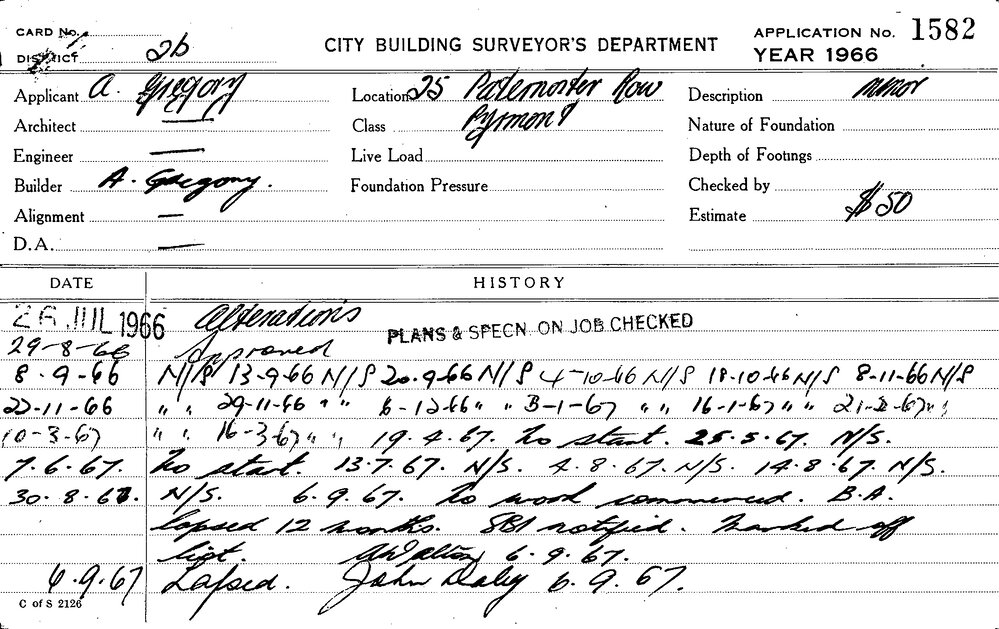 CARD No.
DISTRICT 2b
CITY BUILDING SURVEYOR'S DEPARTMENT
APPLICATION No. 1582
YEAR 1966
Applicant A. Gregory
Location 25 Paternoster Row
Description minor
Architect —
Class Pyrmont
Nature of Foundation
Engineer —
Live Load
Depth of Footings
Builder A. Gregory.
Foundation Pressure
Checked by
Alignment —
Estimate $50
D.A. —
DATE HISTORY
26 JUL 1966 Alterations PLANS & SPECN. ON JOB CHECKED
29-8-66 Approved
8-9-66 N/S 13-9-66 N/S 20-9-66 N/S 4-10-66 N/S 18-10-66 N/S 8-11-66 N/S
22-11-66 " " 29-11-66 " " 6-12-66 " " 3-1-67 " " 16-1-67 " " 21-2-67 " "
10-3-67 " " 16-3-67 " " 19.4.67. No start. 25.5.67. N/S.
7.6.67. No start. 13.7.67. N/S. 4.8.67. N/S. 14.8.67. N/S.
30.8.67. N/S. 6.9.67. No work commenced. B.A.
lapsed 12 months. SBI notified. Marked off
list. 6.9.67.
6.9.67 Lapsed. John Daley 6.9.67.
C of S 2126